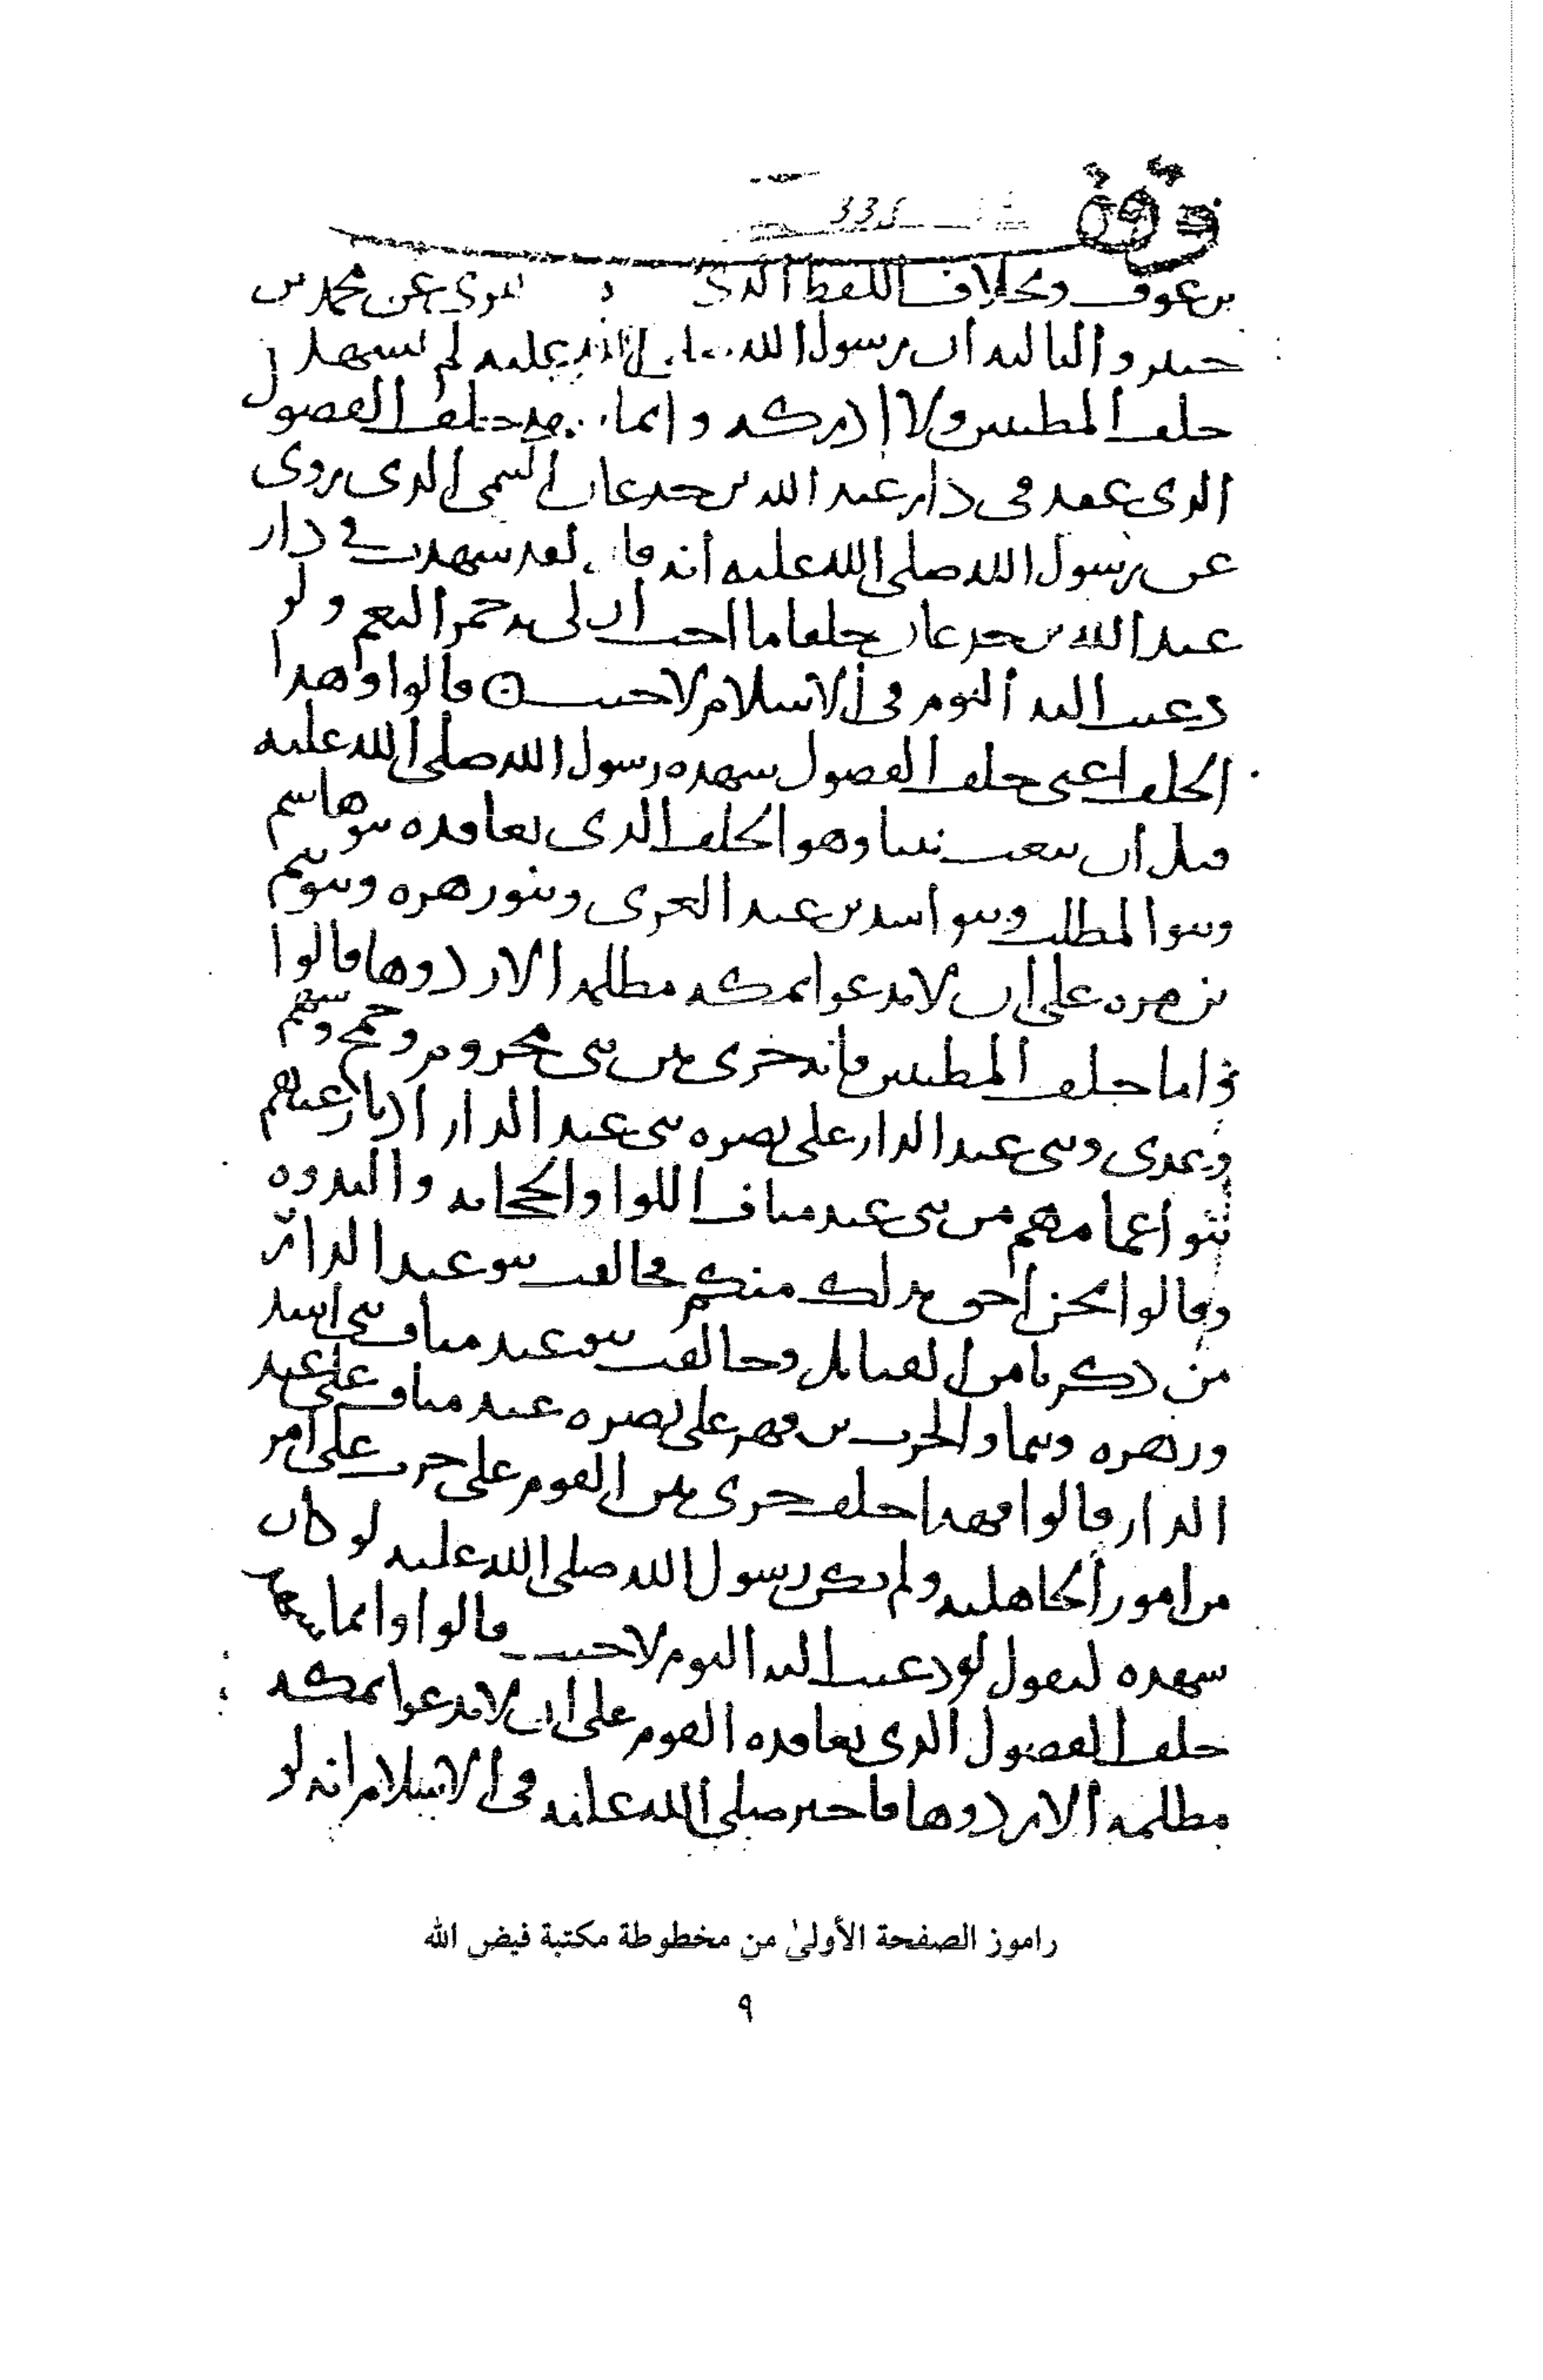 وقف
بن عوف وبخلاف اللفظ الذي يروى عن محمد بن
جبير والثالثة أن رسول الله صلى الله عليه لم يشهد
حلف المطيبين ولا أدركه وإنما شهد حلف الفضول
الذي عقد في دار عبد الله بن جدعان التيمي الذي روي
عن رسول الله صلى الله عليه أنه قال لقد شهدت في دار
عبد الله بن جدعان حلفا ما أحب أن لي به حمر النعم ولو
دعيت إليه اليوم في الإسلام لأجبت قالوا وهذا
الحلف أعني حلف الفضول شهده رسول الله صلى الله عليه
قبل أن يبعث نبيا وهو الحلف الذي تعاقده بنو هاشم
وبنو المطلب وبنو أسد بن عبد العزى وبنو زهرة وبنو تيم
بن مرة على أن لا يدعوا بمكة مظلمة إلا ردوها قالوا
وأما حلف المطيبين فإنه جرى بين بني مخزوم وجمح وسهم
وعدي وبني عبد الدار على نصرة بني عبد الدار إذ نازعهم
بنو أعمامهم من بني عبد مناف اللوا والحجابة والندوة
وقالوا نحن أحق بذلك منكم فحالفت بنو عبد الدار
من ذكرنا من القبائل وحالفت بنو عبد مناف بني أسد
وزهرة وتيما والحرث بن فهر على نصرة عبد مناف على عبد
الدار قالوا فهذا حلف جرى بين القوم على حرب على أمر
من أمور الجاهلية ولم يكن رسول الله صلى الله عليه لو كان
شهده ليقول لو دعيت إليه اليوم لأجبت قالوا وإنما
حلف الفضول الذي تعاقده القوم على أن لا يدعوا بمكة
مظلمة إلا ردوها فأخبر صلى الله عليه في الإسلام أنه لو
راموز الصفحة الأولىٰ من مخطوطة مكتبة فيض الله
٩